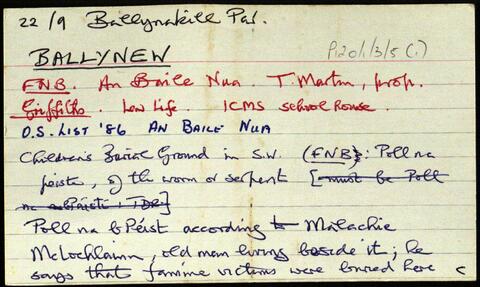 22/9 Ballynakill Par.
BALLYNEW P120/1/3/5 (1)
FNB. An Baile Nua. T. Martin, prop.
Griffiths. Law Life. ICMS School House.
O.S. LIST '86 AN BAILE NUA
Children's Burial Ground in S.W. (FNB): Poll na
péiste, of the worm or serpent [must be Poll
na bPáistí, TDR]
Poll na bPéist according to Malachie
McLochlainn, old man living beside it; he
says that famine victims were buried here c